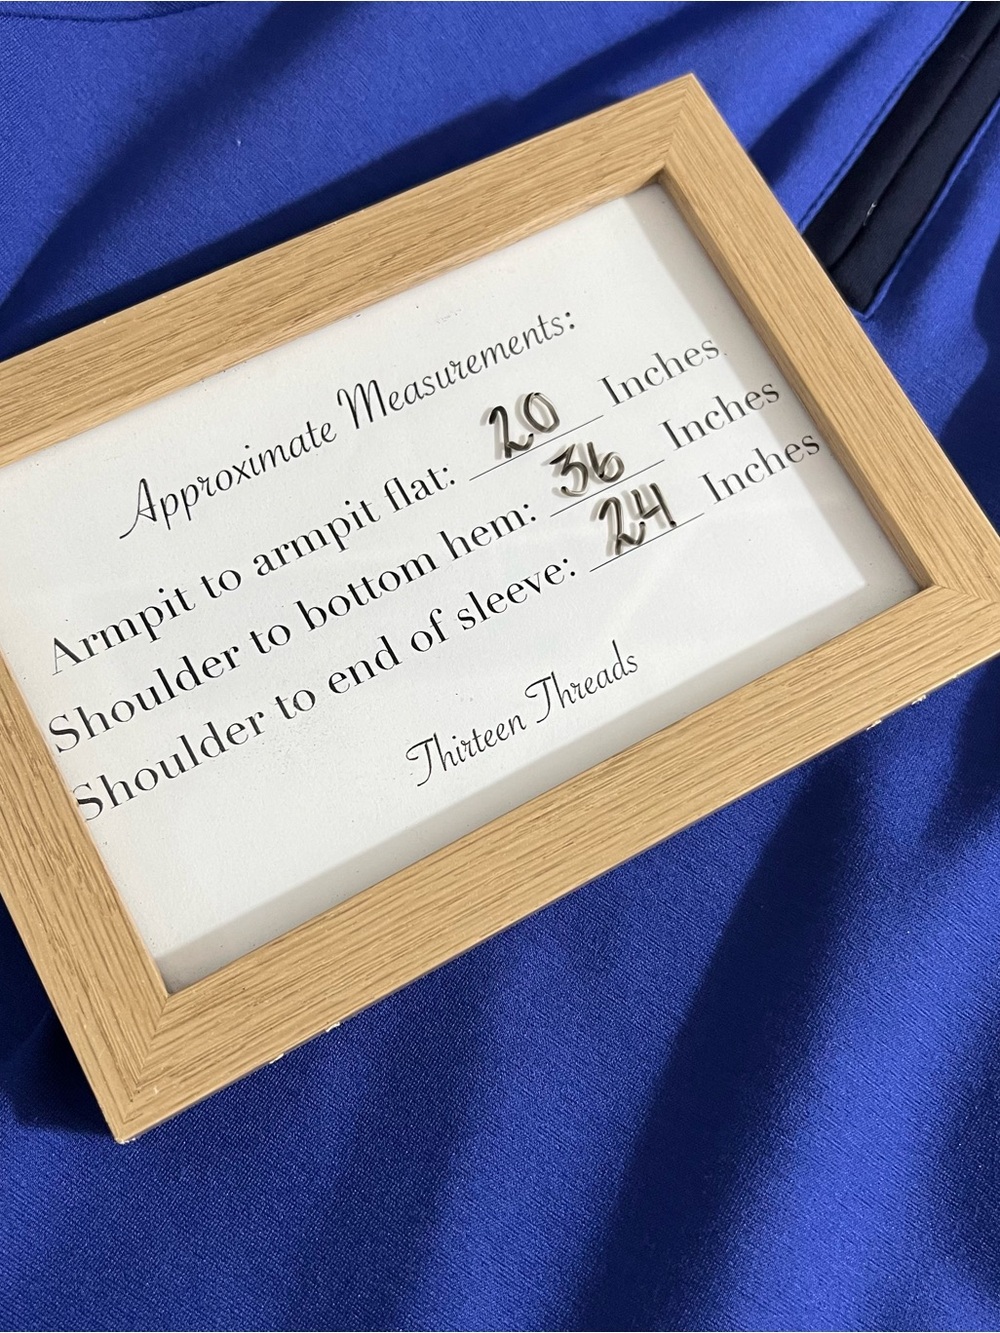 Approximate Measurements:
Armpit to armpit flat: 20 Inches
Shoulder to bottom hem: 36 Inches
Shoulder to end of sleeve: 24 Inches
Thirteen Threads